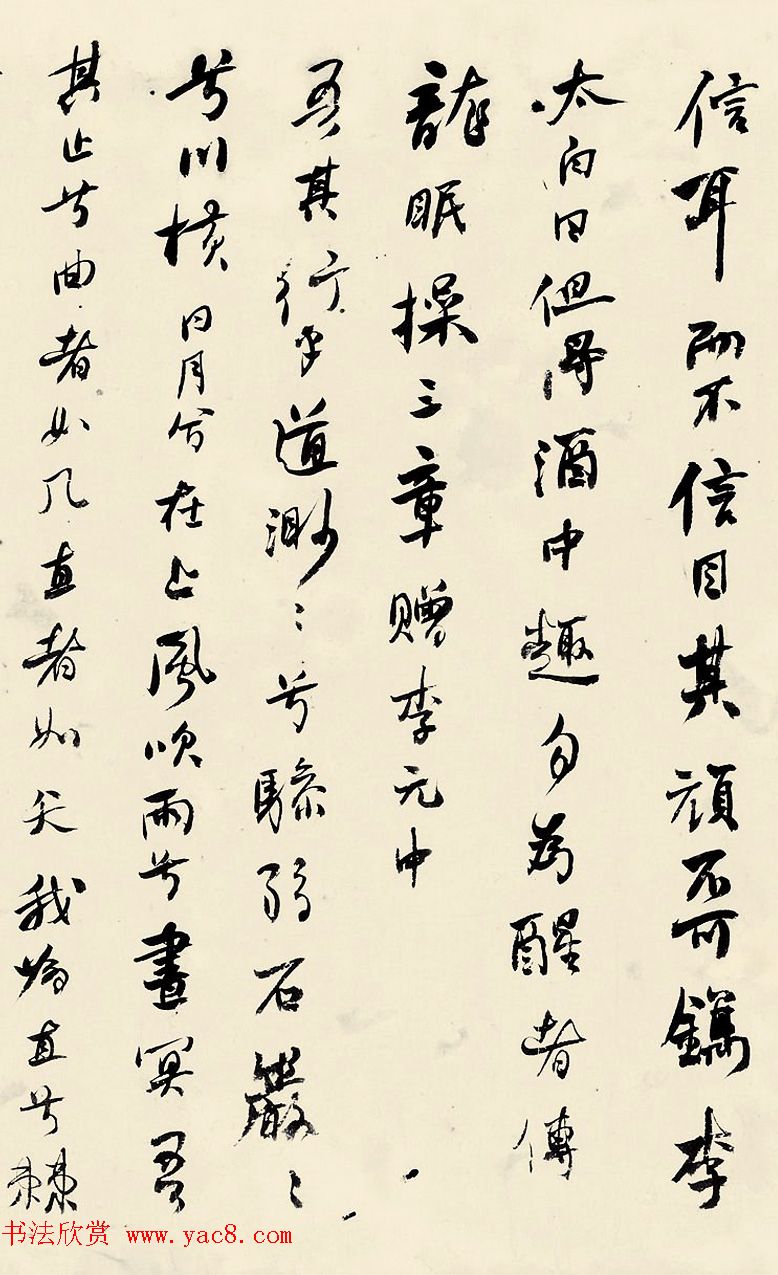 信耳而不信目其頑不可鐫李
太白曰但得酒中趣勿為醒者傳
龍眠操三章贈李元中
吾其行乎道渺〻兮驂弱石巖〻
兮川橫日月兮在上風吹雨兮晝冥吾
其止兮曲者如几直者如矢我為直兮棘
书法欣赏 www.yac8.com